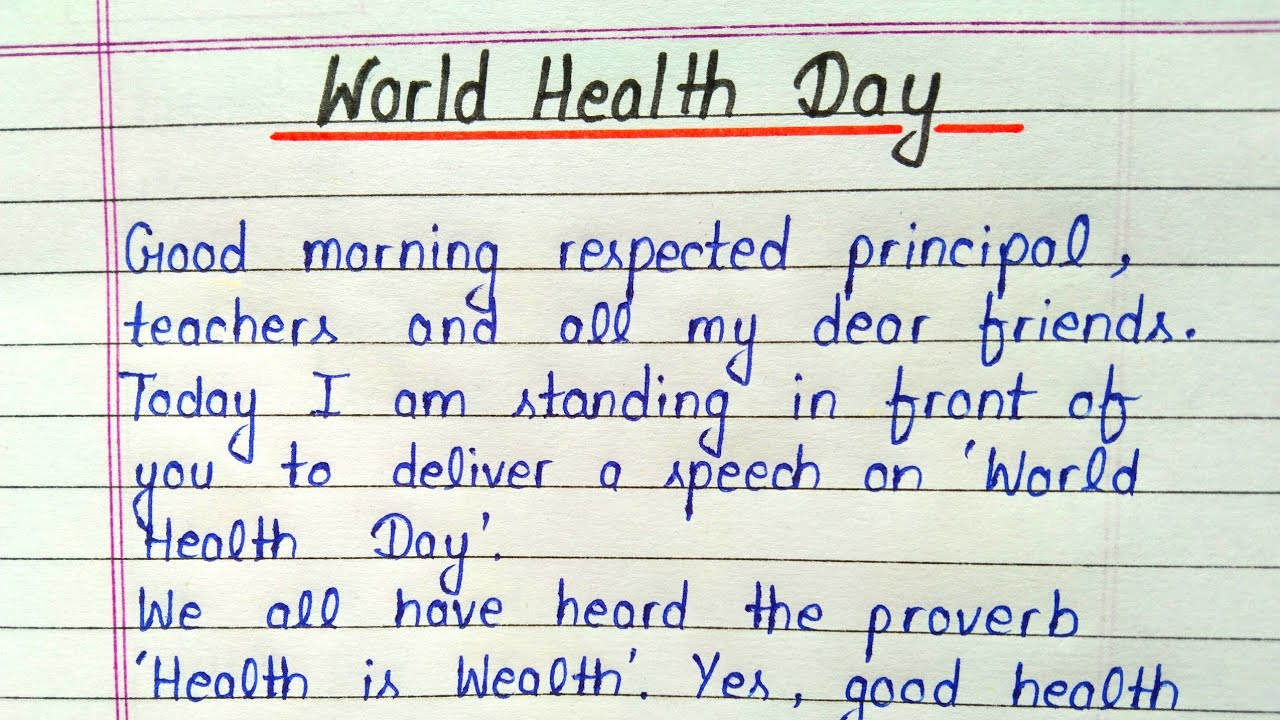 World Health Day
Good morning respected principal,
teachers and all my dear friends.
Today I am standing in front of
you to deliver a speech on 'World
Health Day'.
We all have heard the proverb
'Health is Wealth'. Yes, good health